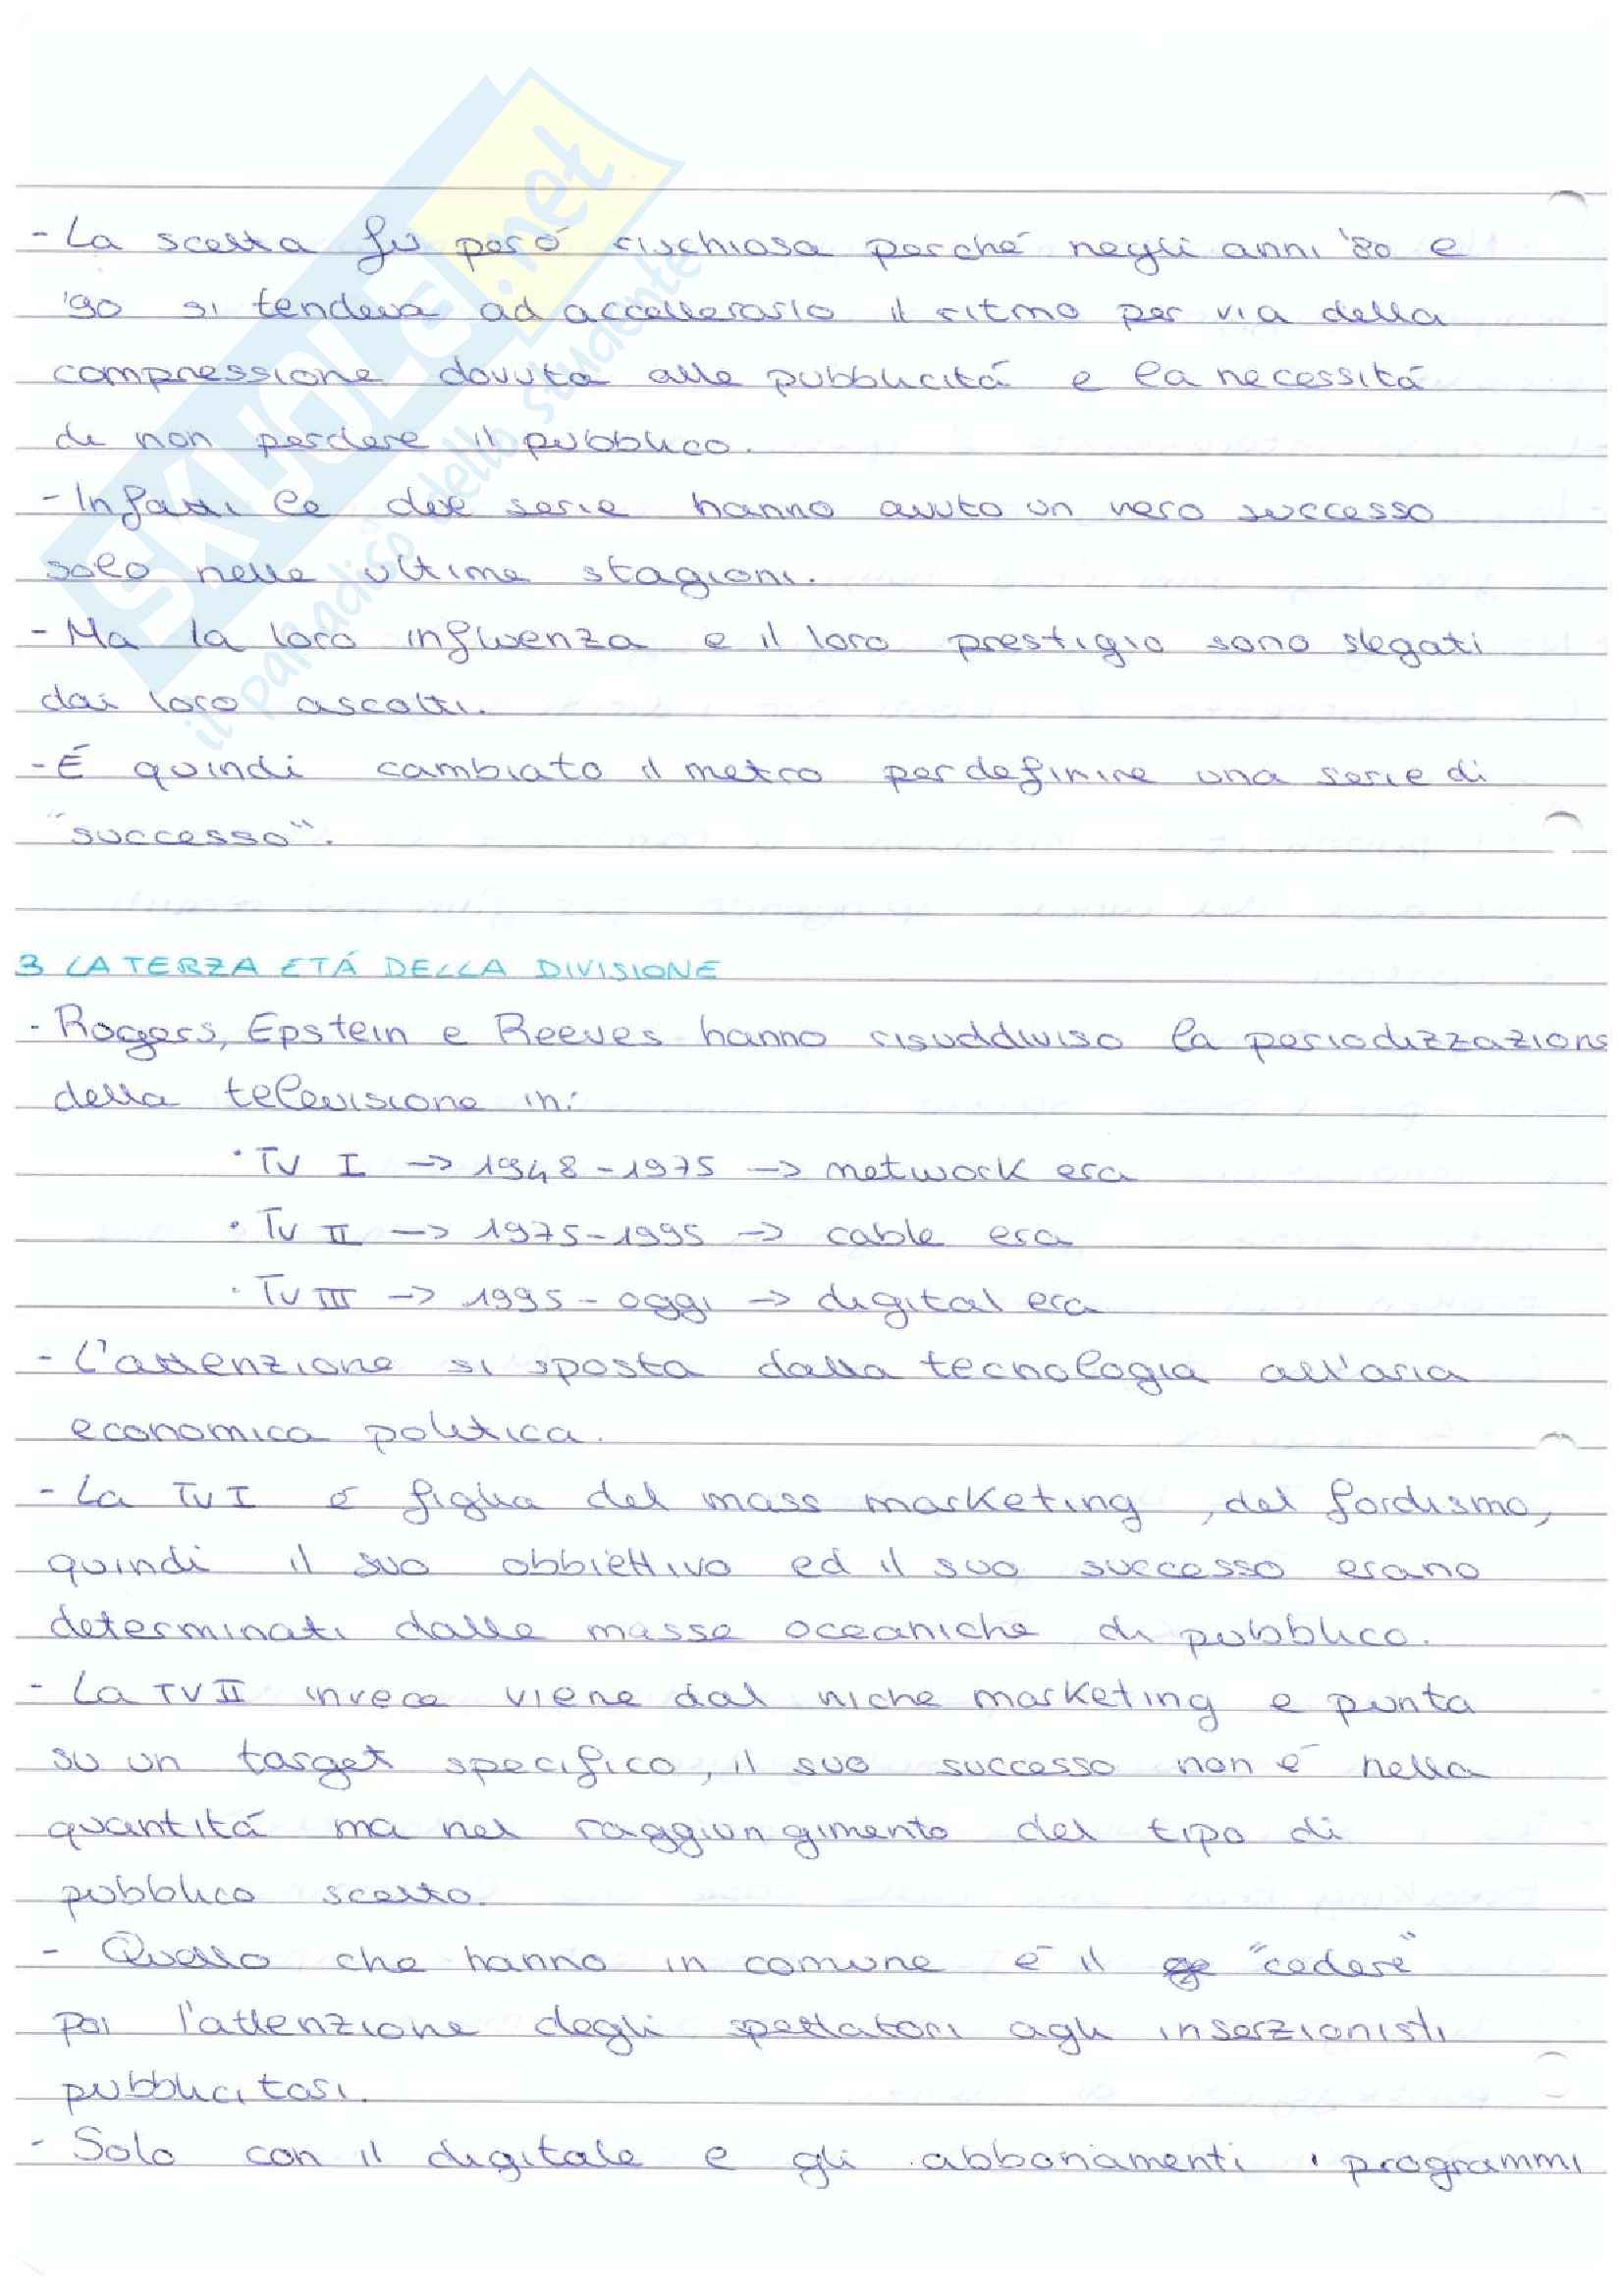 SKUOLA.net
il paradiso dello studente
- La scelta fu peró rischiosa perché negli anni '80 e
'90 si tendeva ad accellerarlo il ritmo per via della
compressione dovuta alle pubblicitá e la necessitá
di non perdere il pubblico.
- Infatti le due serie hanno avuto un vero successo
solo nelle ultime stagioni.
- Ma la loro influenza e il loro prestigio sono slegati
dai loro ascolti.
- É quindi cambiato il metro per definire una serie di
"successo".
3 LA TERZA ETÁ DELLA DIVISIONE
- Rogers, Epstein e Reeves hanno risuddiviso la periodizzazione
della televisione in:
• TV I -> 1948-1975 -> network era
• TV II -> 1975-1995 -> cable era
• TV III -> 1995-oggi -> digital era
- L'attenzione si sposta dalla tecnologia all'aria
economica politica.
- La TV I é figlia del mass marketing, del fordismo,
quindi il suo obbiettivo ed il suo successo erano
determinati dalle masse oceaniche di pubblico.
- La TV II invece viene dal niche marketing e punta
su un target specifico, il suo successo non é nella
quantitá ma nel raggiungimento del tipo di
pubblico scelto.
- Quello che hanno in comune é il "cedere"
poi l'attenzione degli spettatori agli inserzionisti
pubblicitari.
- Solo con il digitale e gli abbonamenti i programmi